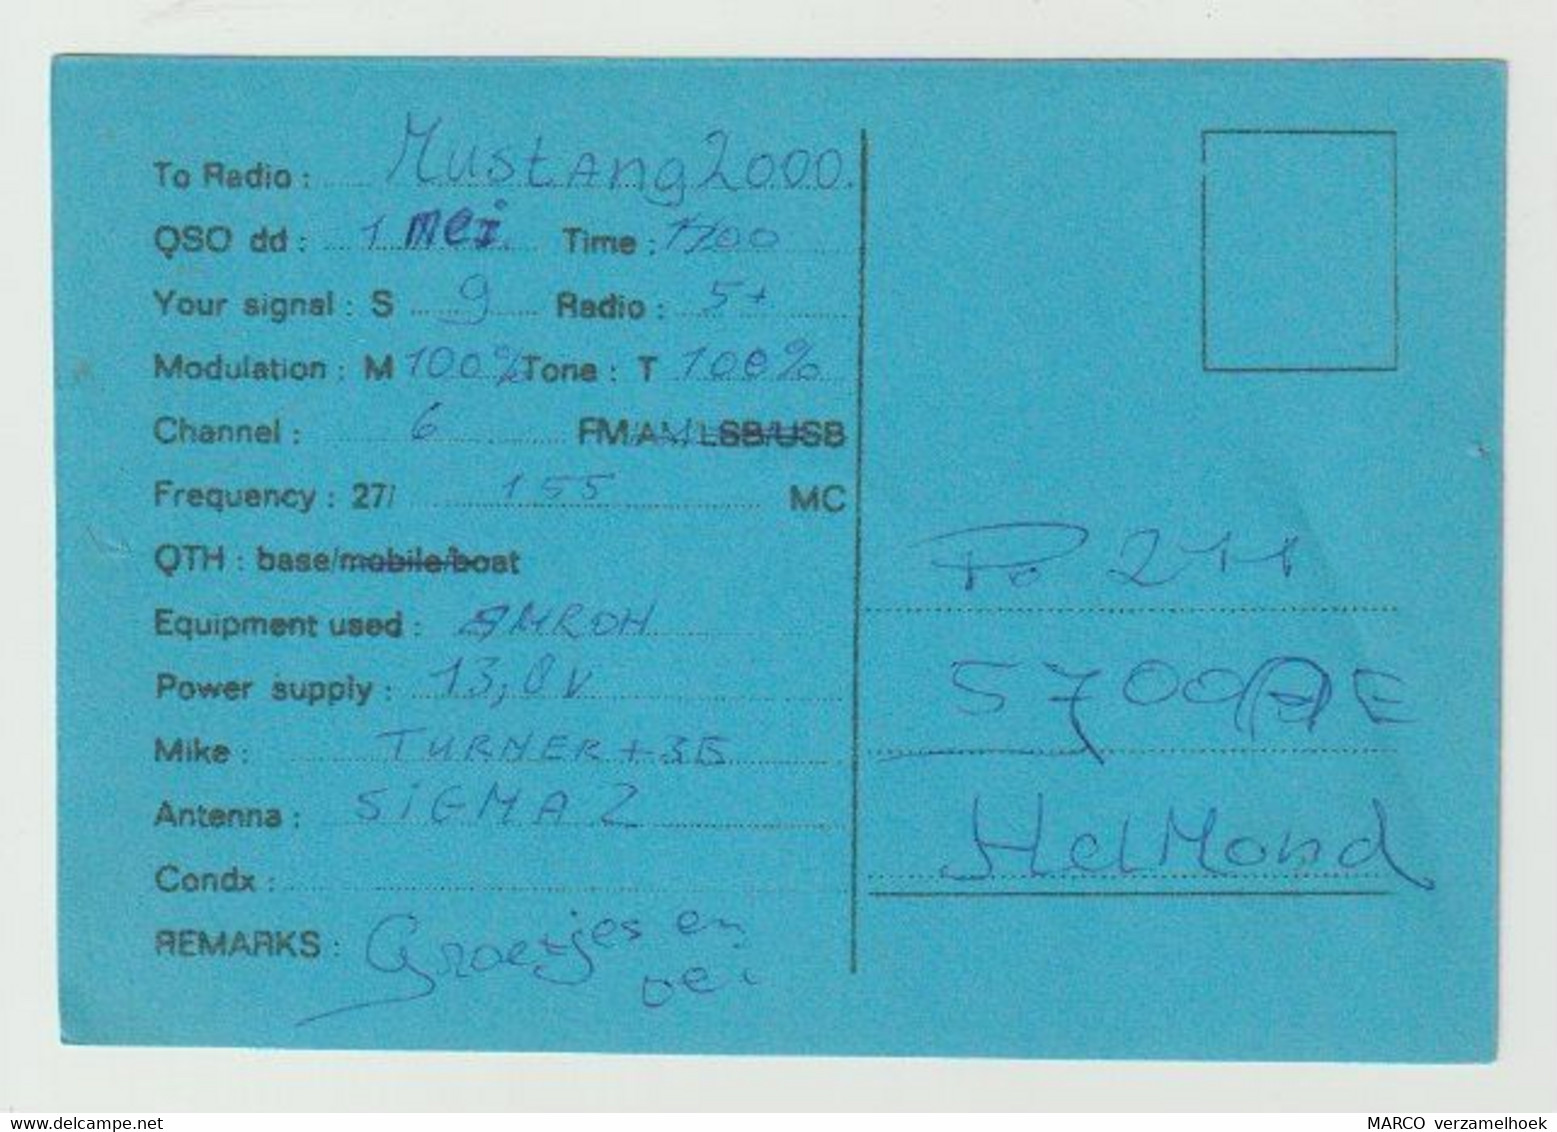 To Radio : Mustang 2000.
QSO dd : 1 mei. Time : 1700
Your signal : S 9 Radio : 5+
Modulation : M 100% Tone : T 100%
Channel : 6 FM/AM/LSB/USB
Frequency : 27/ 155 MC
QTH : base/mobile/boat
Equipment used : AMROH
Power supply : 13,8v
Mike : TURNER +3B
Antenna : SIGMA 2
Condx :
REMARKS : Groetjes en
Po 211
5700 AE
HelMond
MARCO verzamelhoek